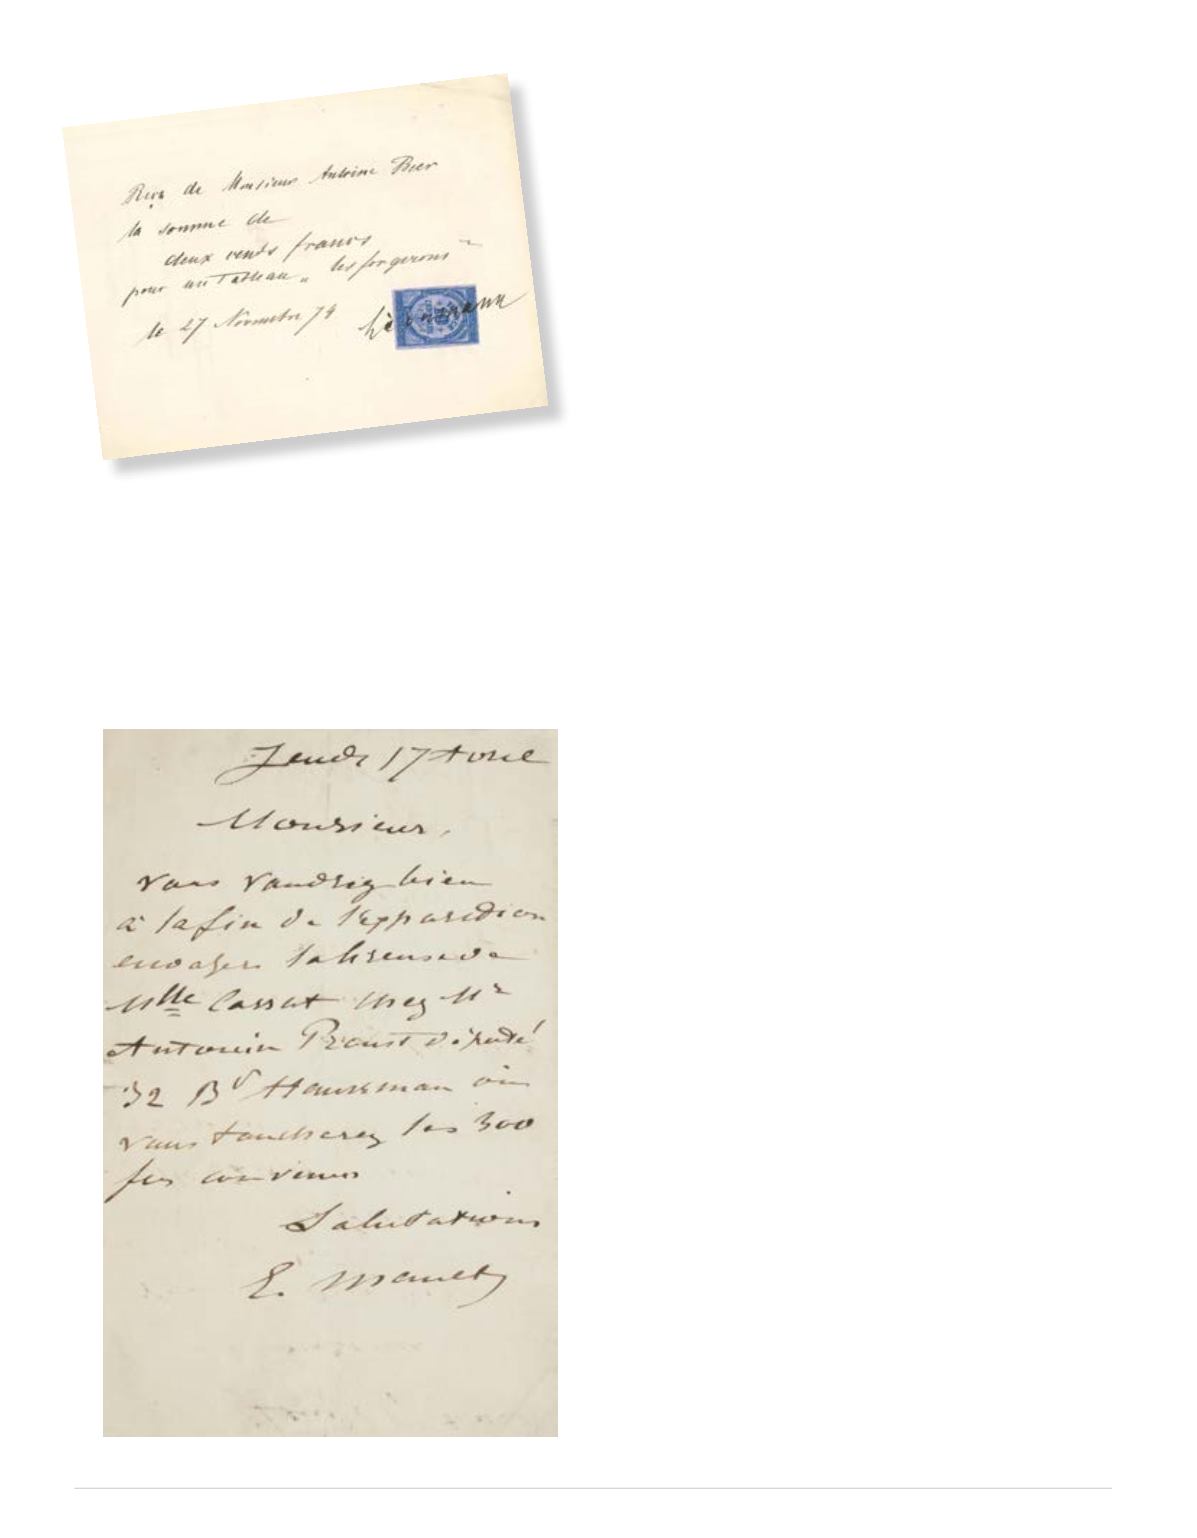 Reçu de Monsieur Antoine Beer
la somme de
deux cents francs
pour un Tableau „ les forgerons "
le 27 Novembre 74
Jeudi 17 Avril
Monsieur,
vous voudrez bien
à la fin de l'exposition
envoyer
Mlle Cassat chez Mr
Antonin Proust député
32 Bd Haussman où
vous toucherez les 300
frs convenus
Salutations
E. Manet